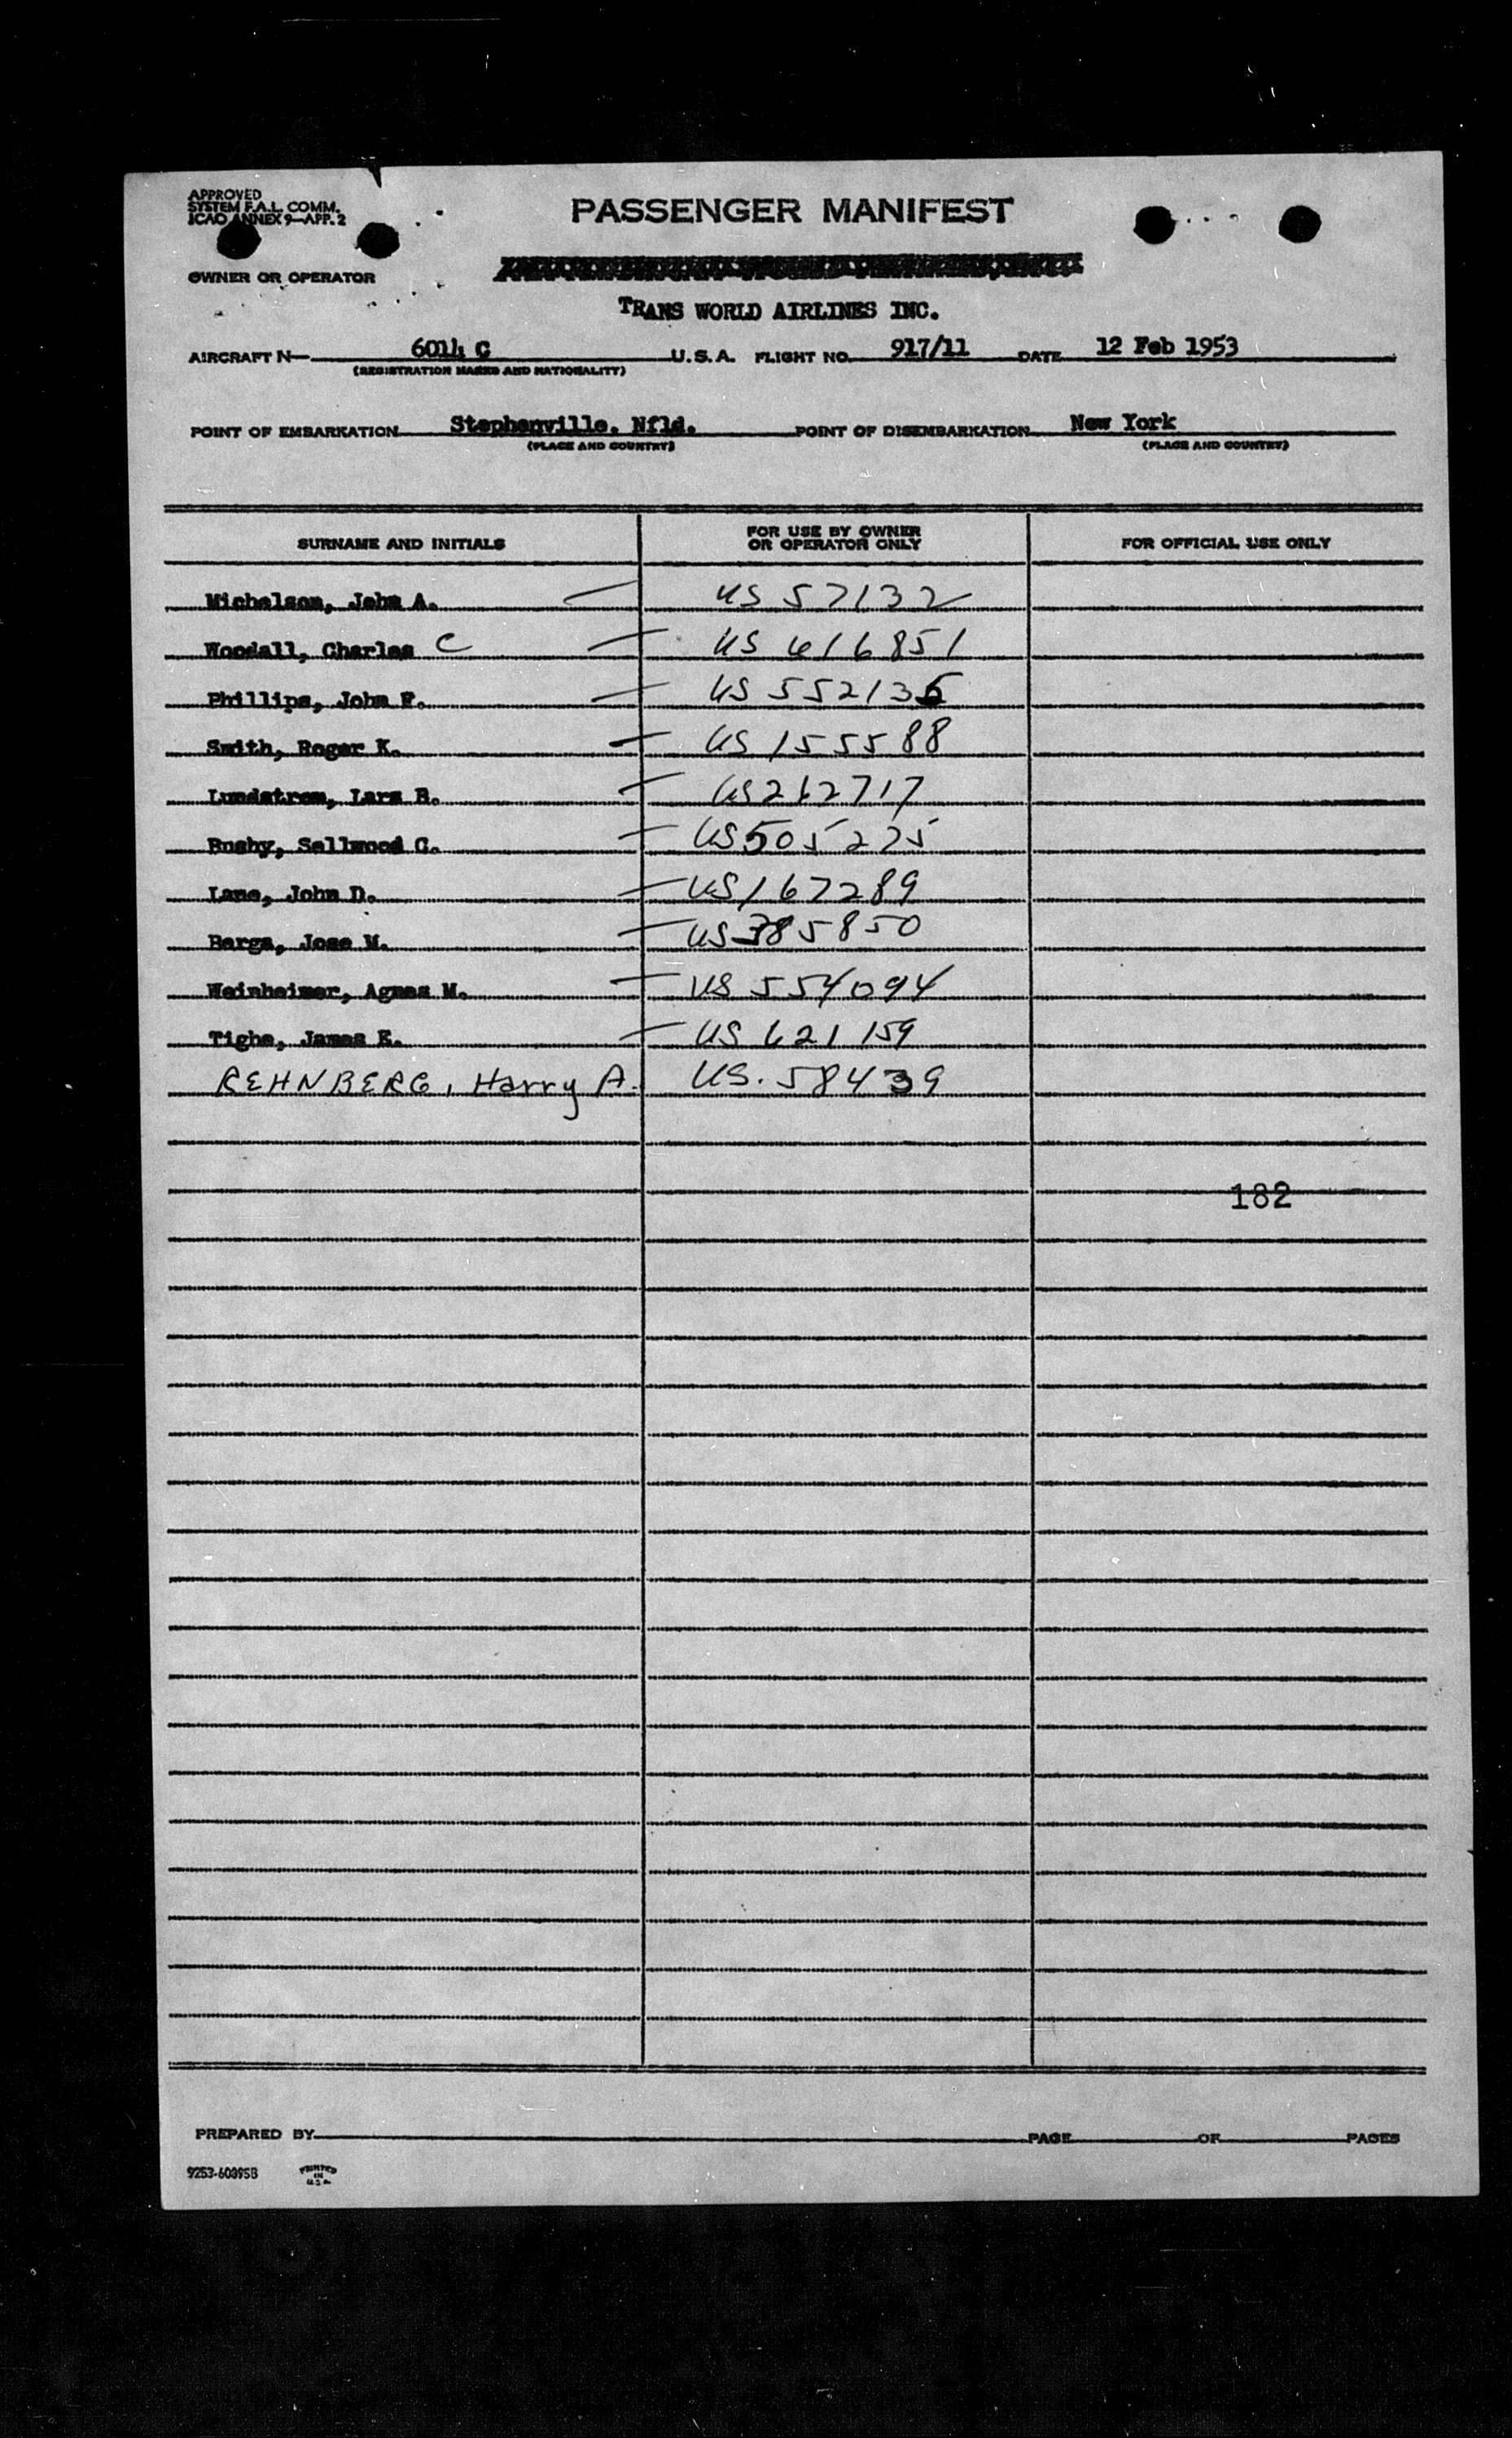 APPROVED
SYSTEM F.A.L. COMM.
ICAO ANNEX 9—APP. 2
PASSENGER MANIFEST
OWNER OR OPERATOR
TRANS WORLD AIRLINES INC.
AIRCRAFT N— 6014 C U.S.A. FLIGHT NO. 917/11 DATE 12 Feb 1953
(REGISTRATION MARKS AND NATIONALITY)
POINT OF EMBARKATION Stephenville, Nfld. POINT OF DISEMBARKATION New York
(PLACE AND COUNTRY) (PLACE AND COUNTRY)
SURNAME AND INITIALS FOR USE BY OWNER OR OPERATOR ONLY FOR OFFICIAL USE ONLY
Michelson, John A. — US 57132
Woodall, Charles C — US 616851
Phillips, John F. — US 552135
Smith, Roger K. — US 155588
Lundstrom, Lars B. — US 262717
Busby, Sellwood C. — US 505225
Lane, John D. — US 167289
Barga, Jose M. — US 385850
Weinheimer, Agnes M. — US 554094
Tighe, James E. — US 621159
REHNBERG, Harry A. US. 58439
182
PREPARED BY PAGE OF PAGES
9253-6039SB PRINTED IN U.S.A.